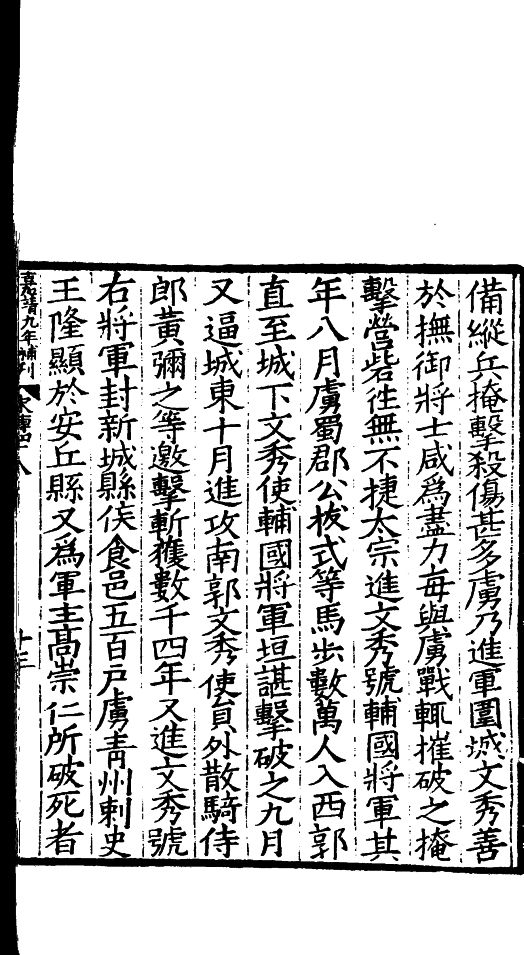 備縱兵掩擊殺傷甚多虜乃進軍圍城文秀善
於撫御將士咸爲盡力每與虜戰輒摧破之掩
擊營砦徃無不捷太宗進文秀號輔國將軍其
年八月虜蜀郡公拔式等馬步數萬人入西郭
直至城下文秀使輔國將軍垣諶擊破之九月
又逼城東十月進攻南郭文秀使員外散騎侍
郎黃彌之等邀擊斬獲數千四年又進文秀號
右將軍封新城縣侯食邑五百戶虜青州刺史
王隆顯於安丘縣又爲軍主高崇仁所破死者
嘉靖九年補刊
十三